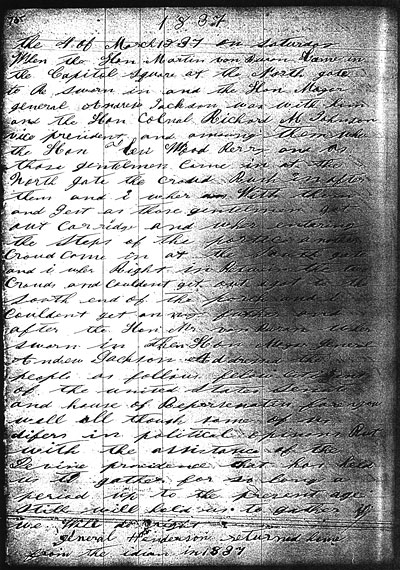 1837
the 4 of March 1837 on saturday
When the Hon Martin van Buren Came in
the Capitol Square at the North gate
to B Sworn in and the Hon Major
general Andrew Jackson was with him
and the Hon Colnal Richard M Johnson
vice president and amoung them was
the Hon Wood Berry and as
those gentlemen Came in at the
North gate the Croud Rush in after
them and i wher With them
and Jest as those gentelmen
out Carridge and wher entering
the Steps of the portico another
Croud Come in at the South gate
and i wher Right in Between the two
Crouds and Couldent get out
South end of the porch and i
Couldent get any further and
after the Hon Mr van Buren wher
sworn in then Hon Major General
Andrew Jackson Addressed the
people as follius fellow
of the united States Senet
and house of Representatives for you
well all though some of us
difers in political opinions But
with the assistance of the
Devine providence that has held
us to gather for so long a
peread up to the present age
Still will hold us to gather if
we Will do Right
general Henderson returned home
from the idian in 1837